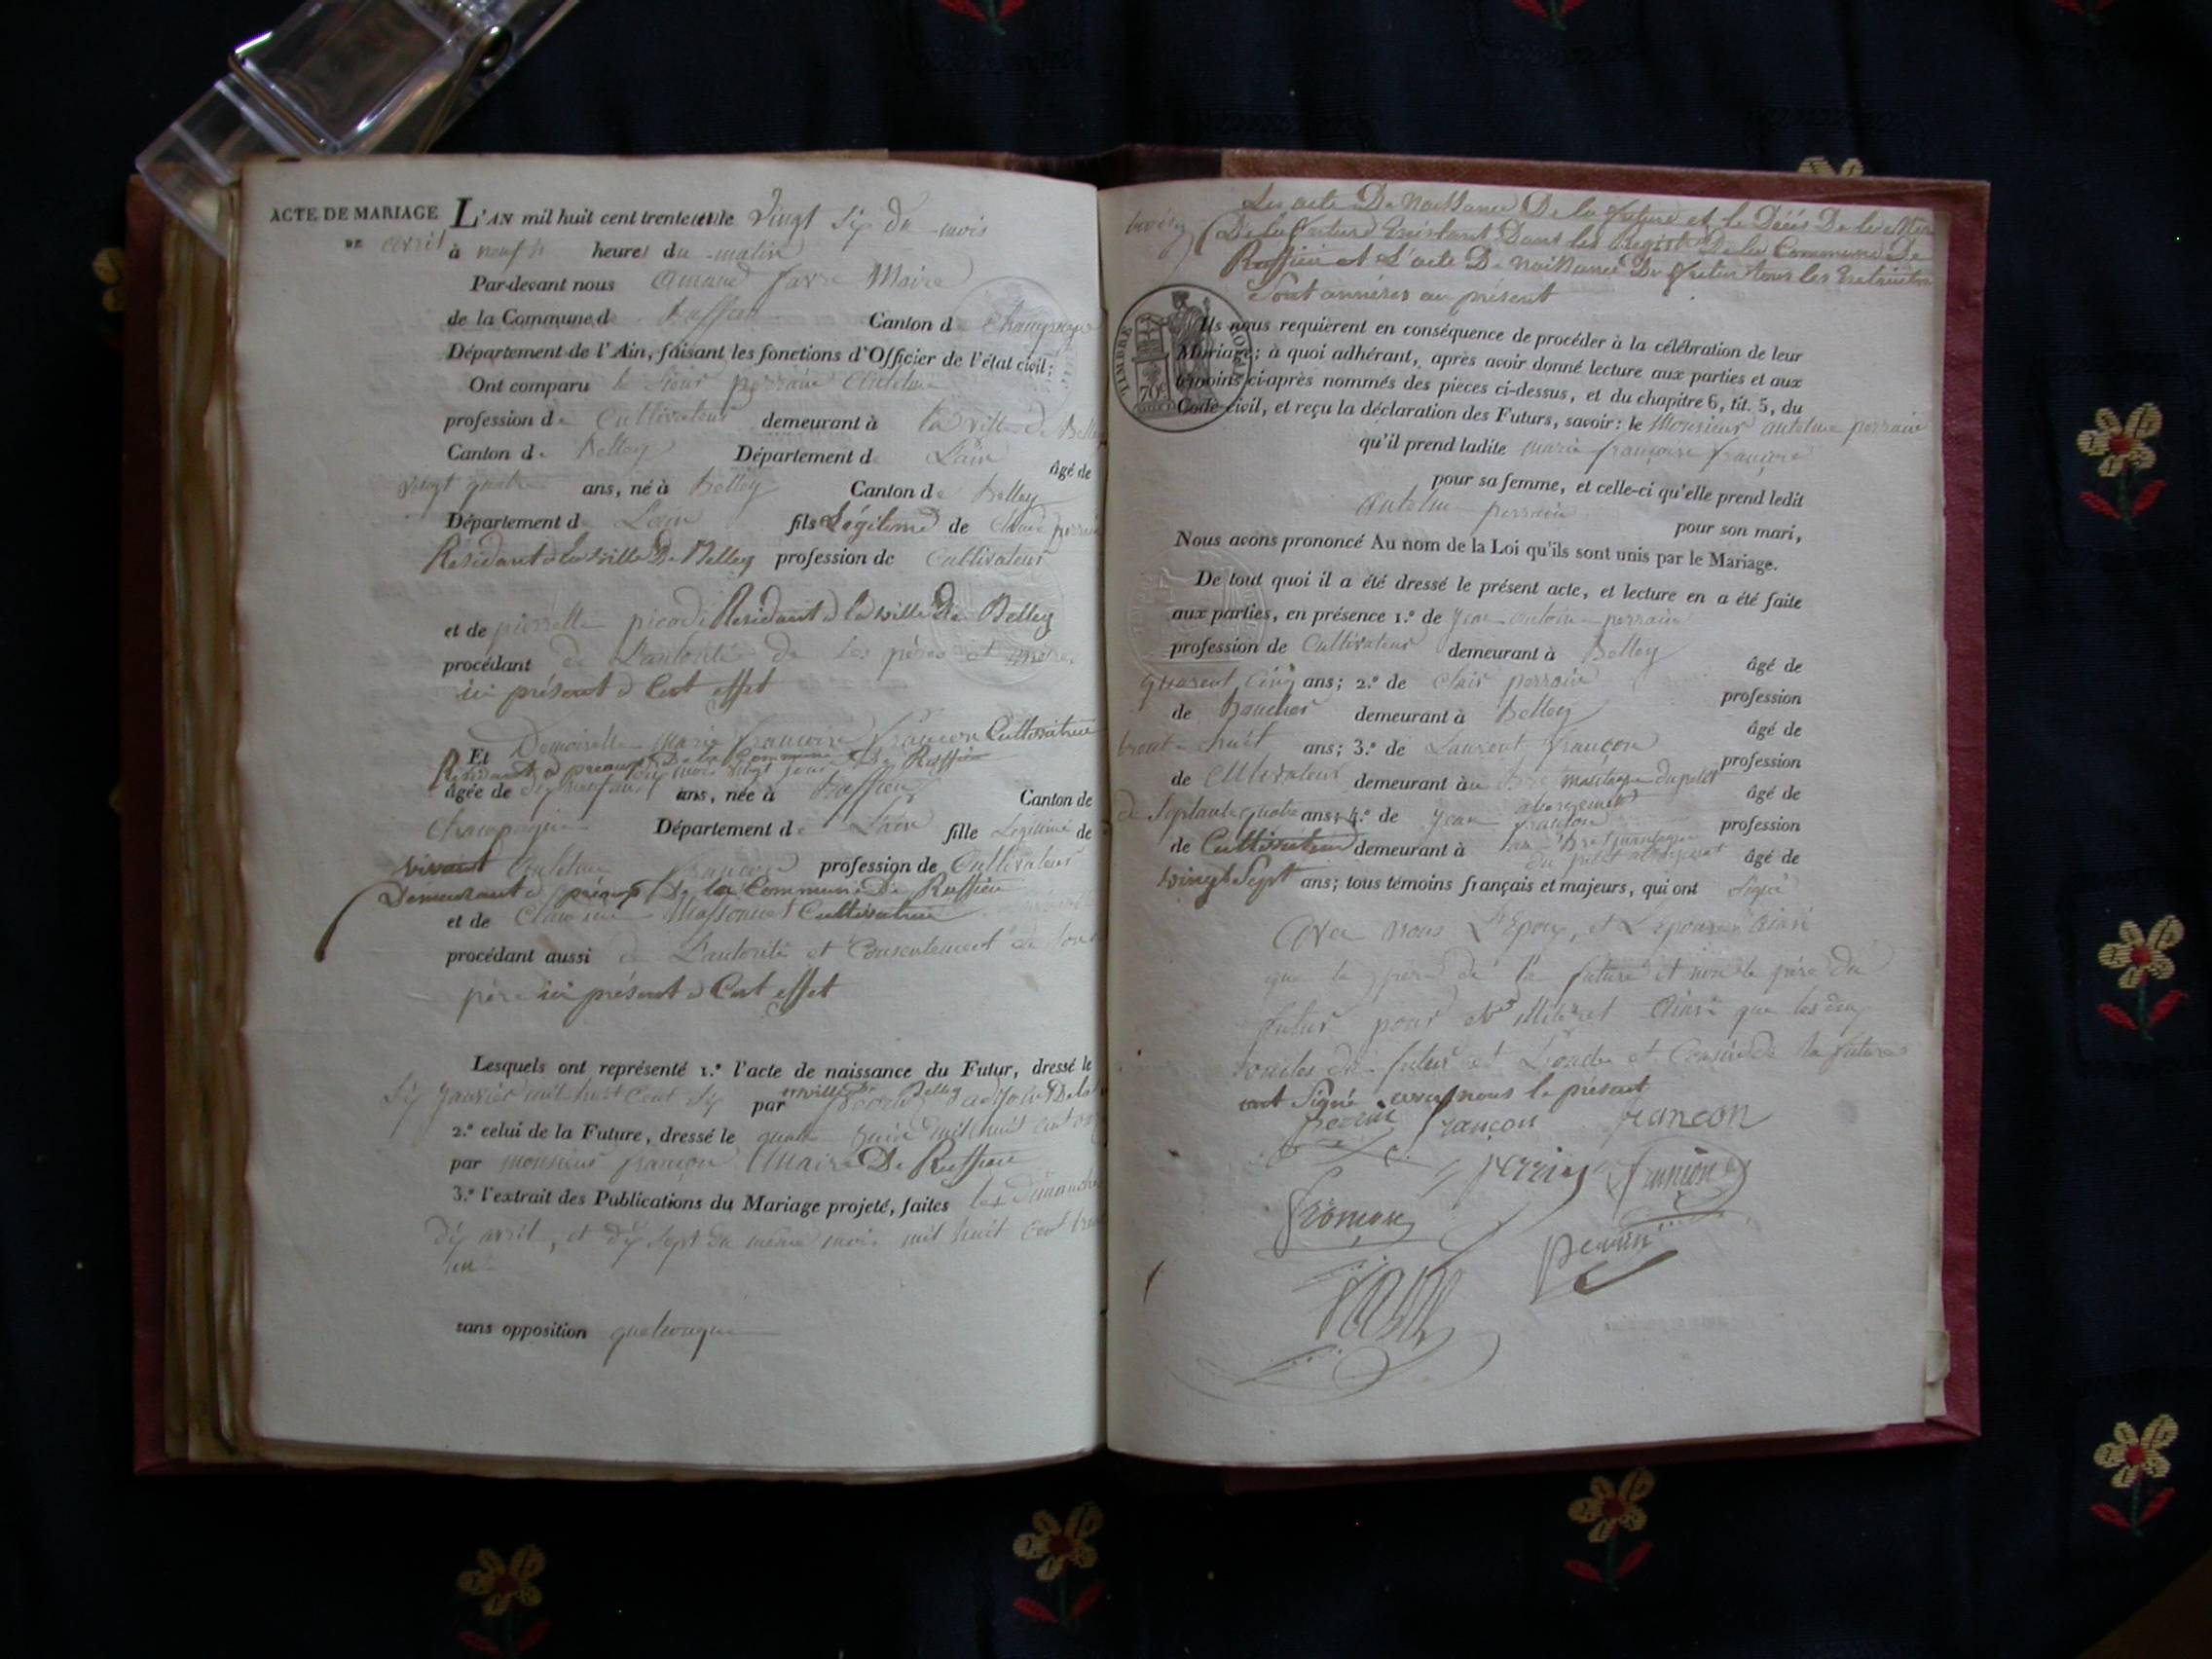 ACTE DE MARIAGE
DE avril
L'AN mil huit cent trente et un le vingt six du mois
à neuf heures du matin
Par-devant nous amand favre Maire
de la Commune de Ruffieu Canton de Champagne
Département de l'Ain, faisant les fonctions d'Officier de l'état civil;
Ont comparu le Sieur perrain Antelme
profession de Cultivateur demeurant à la ville de Belley
Canton de Belley Département de Lain âgé de
vingt quatre ans, né à Belley Canton de Belley
Département de Lain fils Légitime de Claude perrain
Résidant à la ville De Belley profession de Cultivateur
et de pierrette Résidant à la ville De Belley
procédant de Lautorité de ses père et mère
ici présent à Cest effet
Et Demoiselle Marie françoise françon Cultivatrice
Résidant à De la Commune De Ruffieu
âgée de ans, née à Ruffieu Canton de
Champagne Département de Lain fille Légitime de
vivant Antelme françon profession de Cultivateur
Demeurant à De la Commune De Ruffieu
et de Massonnet Cultivatrice
procédant aussi de Lautorité et Consentement de son
père ici présent à Cest effet
Lesquels ont représenté 1.º l'acte de naissance du Futur, dressé le
Six janvier mil huit Cent Six par adjoint De la
2.º celui de la Future, dressé le quatre mil huit cent onze
par monsieur françon Maire De Ruffieu
3.º l'extrait des Publications du Mariage projeté, faites les Dimanche
Dix avril, et dix Sept du même mois mil huit Cent trente
un
sans opposition quelconque
Les acte De Naissance De la future et le Décés De la Mère
De la future Existant Dans les Régist De la Commune De
Ruffieu et L'acte De naissance Du futur tous les
Sont annéxés au présent
Ils nous requièrent en conséquence de procéder à la célébration de leur
Mariage; à quoi adhérant, après avoir donné lecture aux parties et aux
témoins ci-après nommés des pieces ci-dessus, et du chapitre 6, tit. 5, du
Code civil, et reçu la déclaration des Futurs, savoir: le Monsieur antelme perrain
qu'il prend ladite marie françoise françon
pour sa femme, et celle-ci qu'elle prend ledit
antelme perrain
pour son mari,
Nous avons prononcé Au nom de la Loi qu'ils sont unis par le Mariage.
De tout quoi il a été dressé le présent acte, et lecture en a été faite
aux parties, en présence 1.º de jean antoine perrain
profession de Cultivateur demeurant à Belley âgé de
quarent Cinq ans; 2.º de Clair perrain profession
de Boucher demeurant à Belley âgé de
trent huit ans; 3.º de Laurent françon profession
de Cultivateur demeurant au âgé de
Septante quatre ans; 4.º de jean françon profession
de Cultivateur demeurant à âgé de
vingt Sept ans; tous témoins français et majeurs, qui ont Signé
Avec nous L'Epoux, et L'epouse ainsi
que le pere de la future et non le père du
futur pour ainsi que les deux
oncles du futur et L'oncle et Cousin de la future
ont Signé avec nous le présent
perrin françon françon
perrin françon
perrin
TIMBRE ROYAL
70c